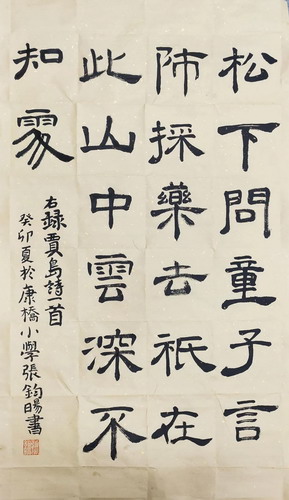 松下問童子言
師採藥去祇在
此山中雲深不
知處
右錄賈島詩一首
癸卯夏於康橋小學張鈞暘書